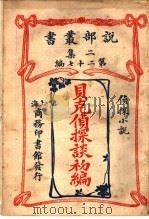 說部叢書
二集
第二十七編
偵探小說
貝克偵探談初編
上海商務印書館發行